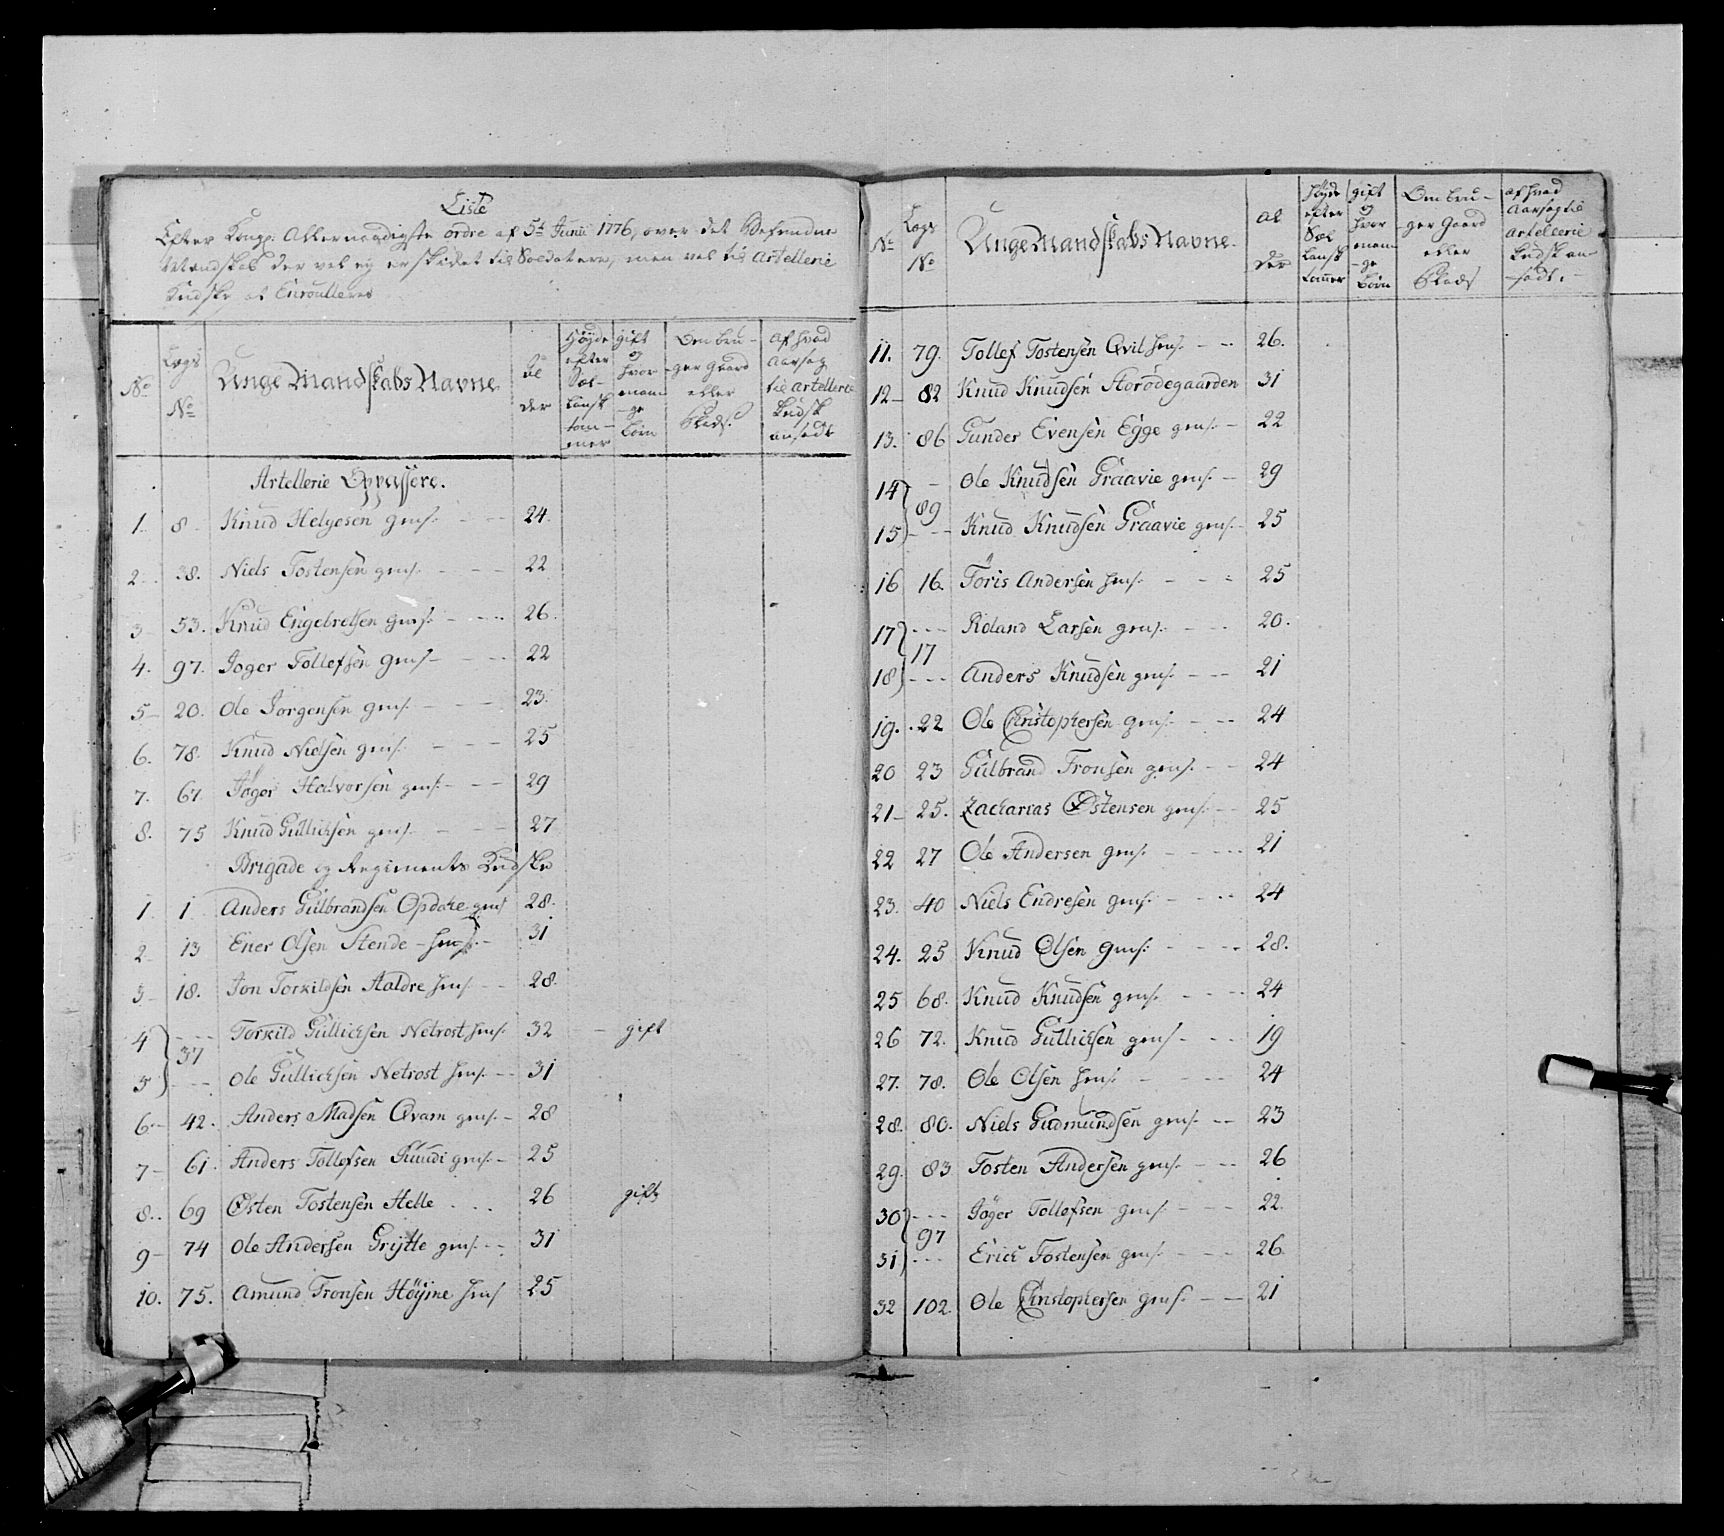 Liste
Efter Kongl: Allernaadigste ordre af 5te Junii 1776, over det Befundne
Mandskab der vel ey er skicket til Soldatere, men vel til Artellerie
Kudske at Enroulleres
No
Lægs No
Unge Mandskabs Navne
Al der
Høyde efter Sællansk tommer
gift og hvor mange Børn
Om bruger Gaard eller Plads.
Af hvad Aarsag til Artellerie Kudsk ansedt
Artellerie Oppassere.
1. 8 Knud Helgesen gens. 24.
2. 38. Niels Tostensen gens. 22
3 53. Knud Engebretsen gens. 26.
4. 97. Joger Tollefsen gens 22
5 20. Ole Jørgensen gens. 23.
6. 78. Knud Nielsen gens. 25
7. 67. Jøger Halvorsen gens. 29
8. 75 Knud Gullichsen gens. 27
Brigade og Regiments Kudske
1. 1 Anders Gulbrandsen Opdahe gens 28.
2 13 Ener Olsen Stende hens. 31
3 18. Jon Torkildsen Aaldre hens 28.
4 Torkild Gullichsen Netrost hens. 32 gift
37
5 Ole Gullichsen Netrost hens. 31
6 42. Anders Madsen Qvam gens. 28
7 61. Anders Tollefsen Ruudi gens. 25
8.. 69 Østen Tostensen Helle . . . 26 gift
9 74 Ole Andersen Grijtte gens. 31
10. 75. Amund Tronsen Høyme hens 25
No
Lægs No
Unge Mandskabs Navne.
al der
Høyde efter Sællansk tommer
gift og hvor mange Børn
Om bruger Gaard eller Plads
af hvad Aarsag til Artellerie Kudsk ansedt.
11. 79. Tollef Tostensen Qvil hens. 26.
12 82 Knud Knudsen Storødegaarden 31
13. 86 Gunder Evensen Egge gens. 22
14 Ole Knudsen Graavie gens. 29
89
15 Knud Knudsen Graavie gens. 25
16 16. Toris Andersen hens. 25
17 Roland Larsen gens. 20.
17
18 Anders Knudsen gens. 21
19. 22 Ole Christophersen gens. 24
20 23 Gulbrand Tronsen gens. 24
21 25. Zacharias Østensen gens. 25
22 27 Ole Andersen gens. 21
23. 40 Niels Endresen gens. 24
24. 25 Knud Olsen gens. 28.
25 68. Knud Knudsen gens. 24
26 72. Knud Gullichsen gens 19
27. 78. Ole Olsen hens. 24
28. 80. Niels Gudmundsen gens. 23
29. 83 Tosten Andersen gens. 26
30 Jøger Tollefsen gens. 22.
97
31 Erich Tostensen gens. 26.
32 102. Ole Christophersen gens. 21